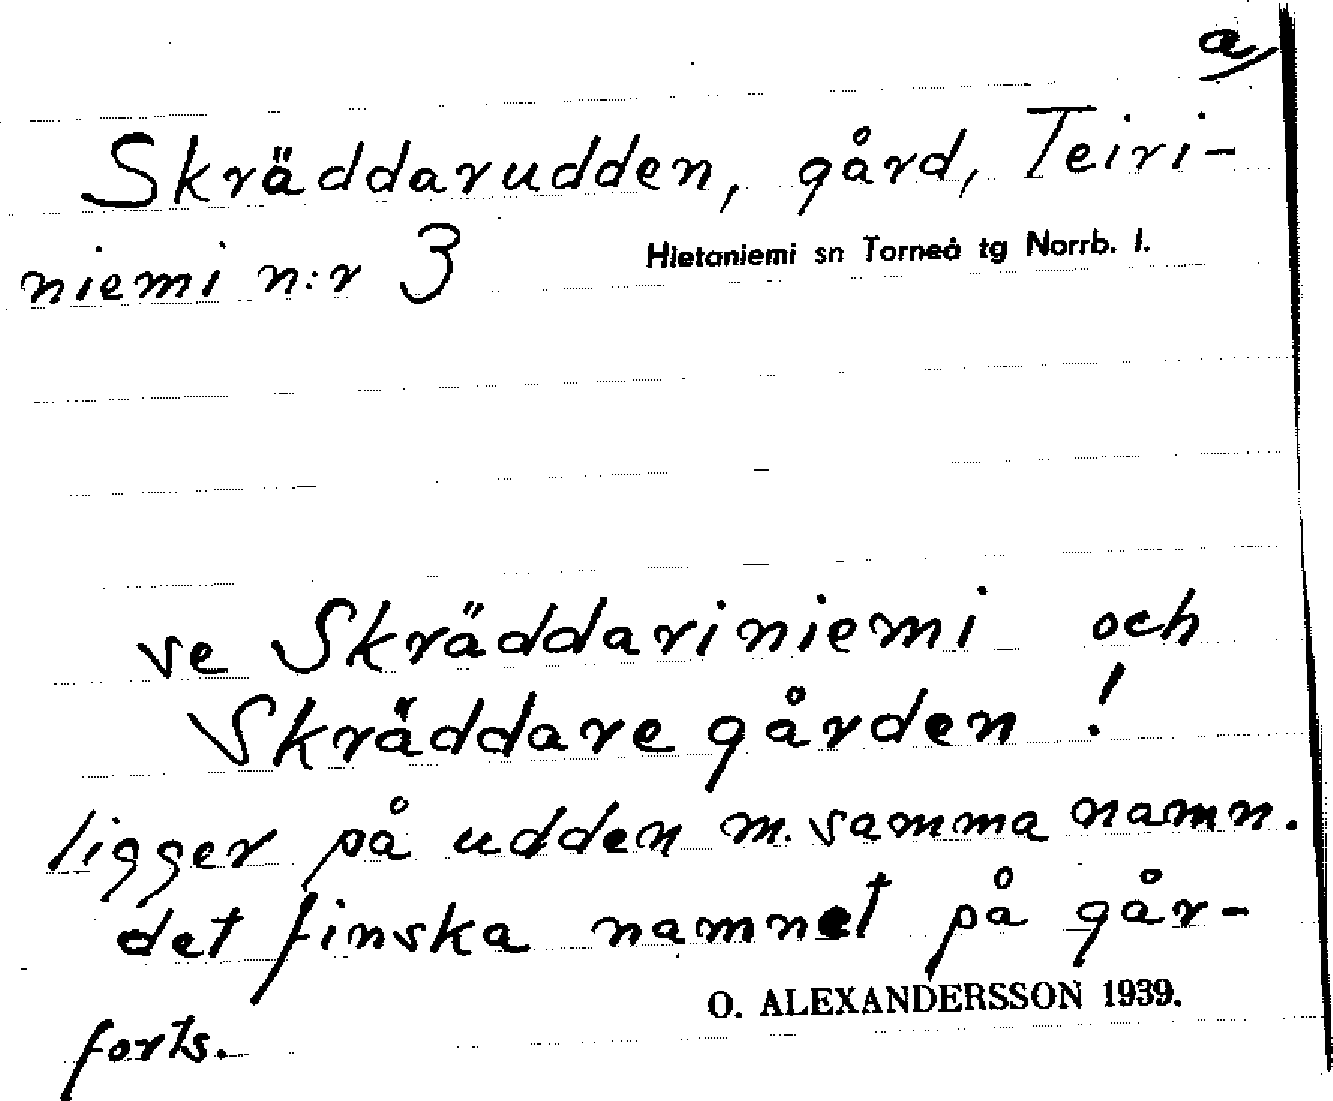 a/
Skräddarudden, gård, Teiri-
niemi n:r 3
Hietaniemi sn Torneå tg Norrb. l.
se Skräddariniemi och
Skräddaregården!
ligger på udden m. samma namn.
det finska namnet på går-
O. ALEXANDERSSON 1939.
forts.